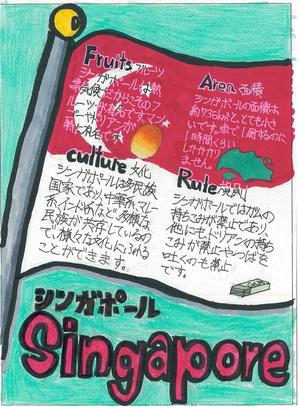 Fruits フルーツ
シンガポールは熱
Area 面積
シンガポールの面積は
とても小さ
いです。車で1周するのに
1時間くらい
しかかかり
ません。
culture 文化
シンガポールは多民族
国家であり中華系、マレー
系、インド系など、多様な
民族が共存しているの
で、様々な文化にふれる
ことができます。
Rule 規則
シンガポールではガムの
持ちこみが禁止されており、
他にもドリアンの持ち
こみが禁止やつばを
吐くのも禁止
です。
シンガポール
Singapore